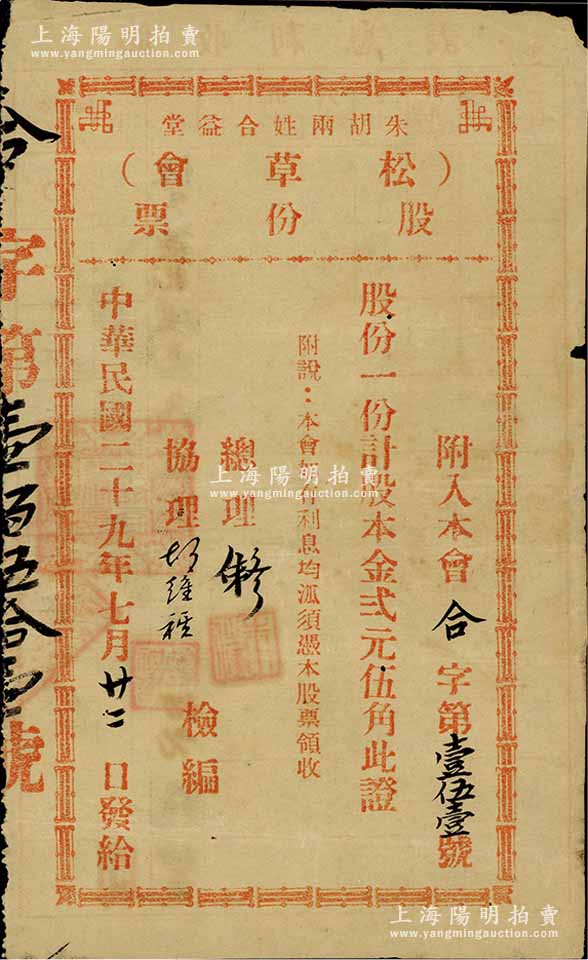 上海陽明拍卖
www.yangmingauction.com
朱胡兩姓合益堂
（松草會）
股份票
附入本會合字第壹伍壹號
股份一份計股本金弍元伍角此證
附說：本會
利息均派須憑本股票領收
總理
協理 胡維
檢編
中華民國二十九年七月廿二日發給
合字第壹百伍拾壹號
上海陽明拍卖
www.yangmingauction.com
上海陽明拍卖
www.yangmingauction.com